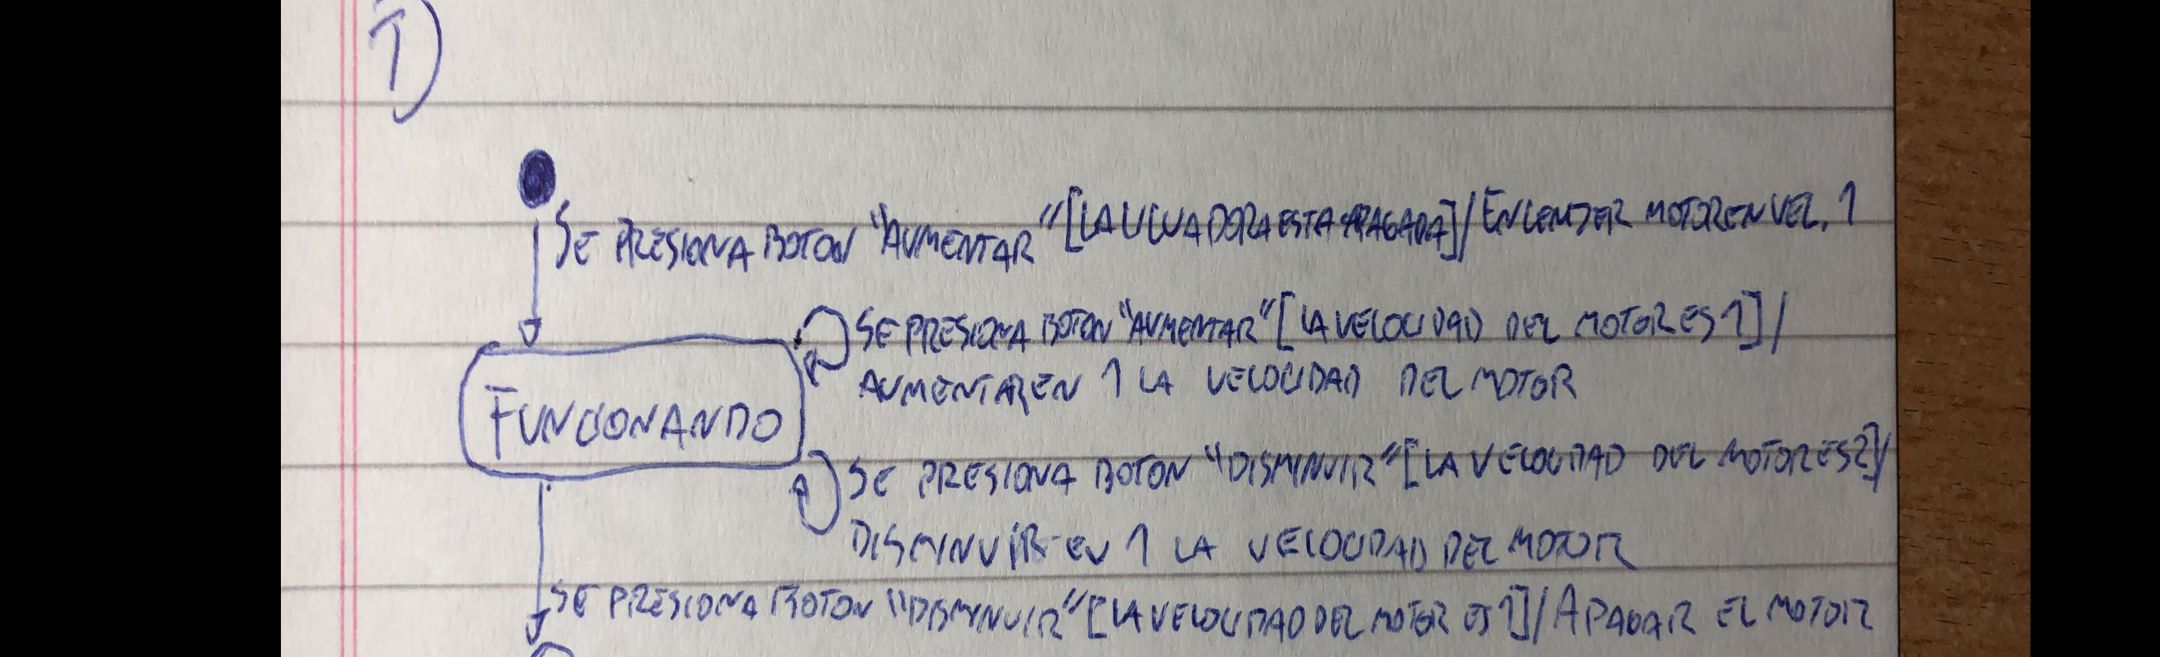 1)
SE PRESIONA BOTON "AUMENTAR" [LA LICUADORA ESTA APAGADA]/ENCENDER MOTOR EN VEL. 1
SE PRESIONA BOTON "AUMENTAR" [LA VELOCIDAD DEL MOTOR ES 1]/
AUMENTAR EN 1 LA VELOCIDAD DEL MOTOR
FUNCIONANDO
SE PRESIONA BOTON "DISMINUIR" [LA VELOCIDAD DEL MOTOR ES 2]/
DISMINUIR EN 1 LA VELOCIDAD DEL MOTOR
SE PRESIONA BOTON "DISMINUIR" [LA VELOCIDAD DEL MOTOR ES 1]/APAGAR EL MOTOR